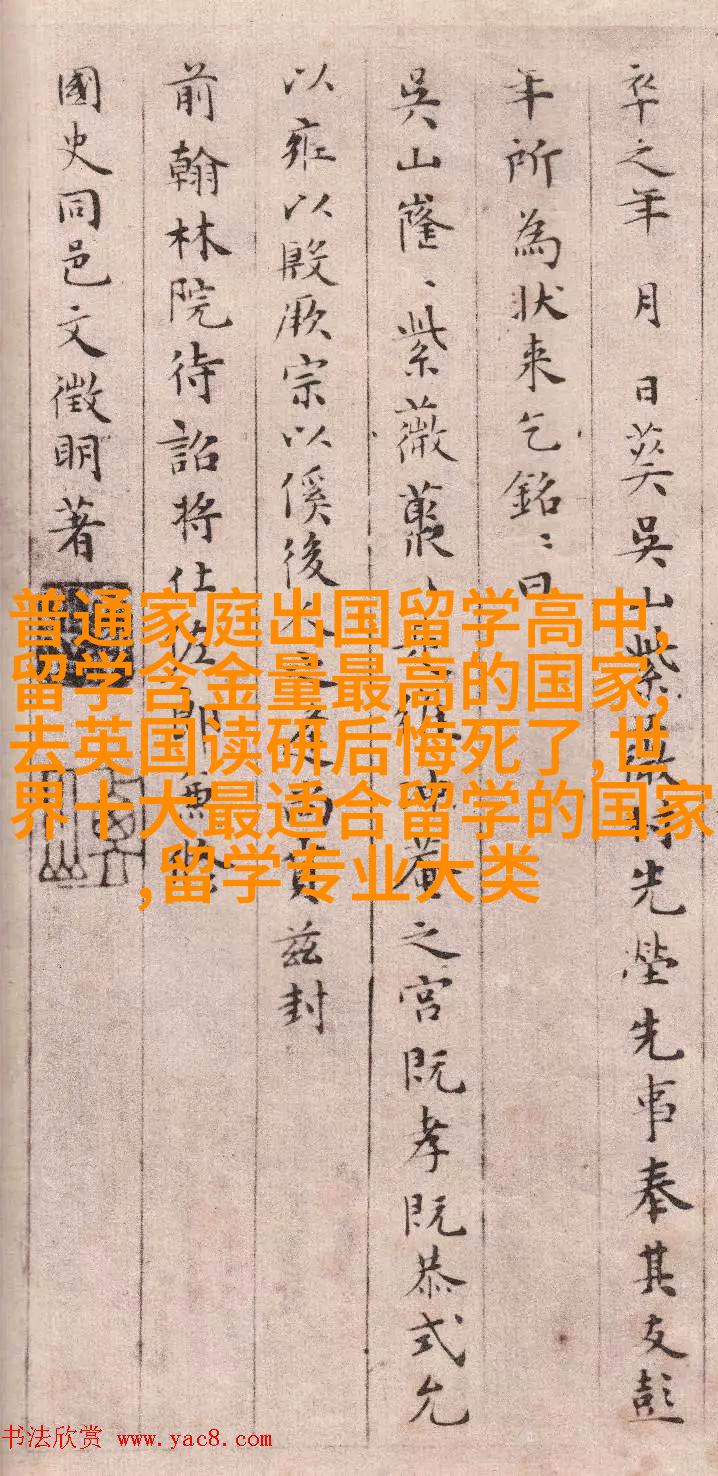 卒之年 月 日葬吳山紫薇將先塋先事奉其友彭
年所為狀來乞銘〻曰
吳山窿〻紫薇叢〻之宮既孝既恭式允
以雍以殷厥宗以傒後茲封
前翰林院待詔將仕佐郎兼修
國史同邑文徵明著
普通家庭出国留学高中,
留学含金量最高的国家,
去英国读研后悔死了,世
界十大最适合留学的国家
,留学专业大类
书法欣赏 www.yac8.com